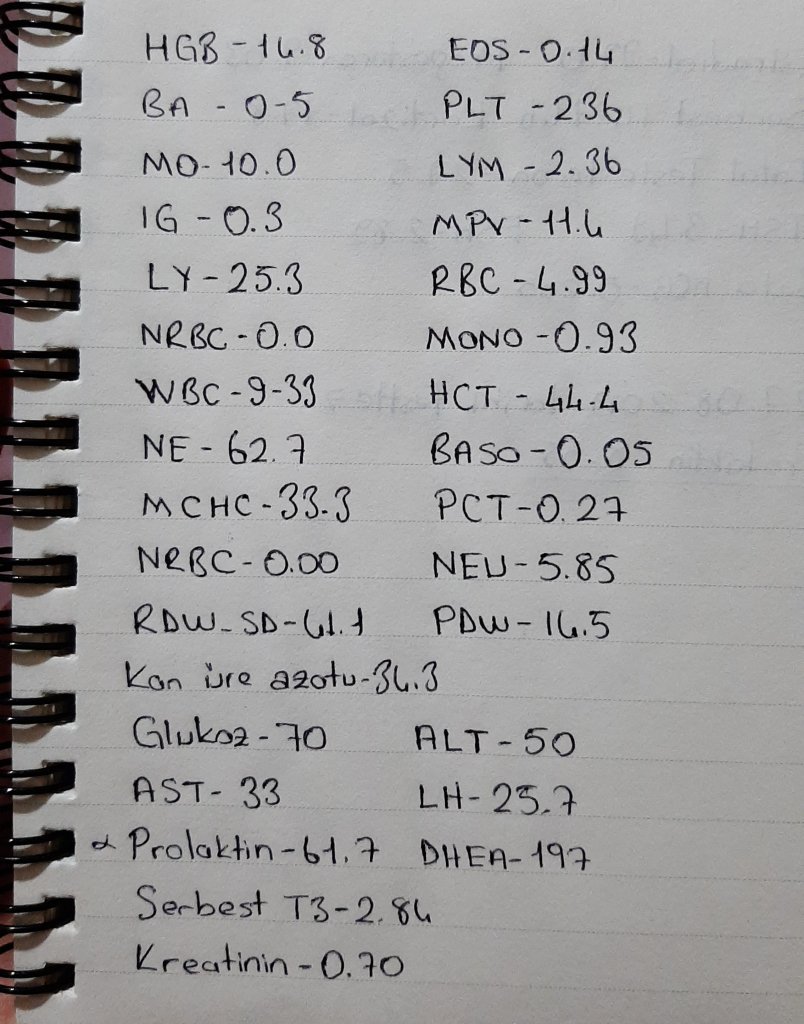 HGB - 14.8 EOS - 0.14
BA - 0-5 PLT - 236
MO- 10.0 LYM - 2.36
IG - 0.3 MPV - 11.4
LY - 25.3 RBC - 4.99
NRBC - 0.0 MONO - 0.93
WBC - 9-33 HCT - 44.4
NE - 62.7 BASO - 0.05
MCHC - 33.3 PCT - 0.27
NRBC - 0.00 NEU - 5.85
RDW_SD - 41.1 PDW - 14.5
Kan üre azotu - 34.3
Glukoz - 70 ALT - 50
AST - 33 LH - 25.7
Prolaktin - 61.7 DHEA - 197
Serbest T3 - 2.84
Kreatinin - 0.70